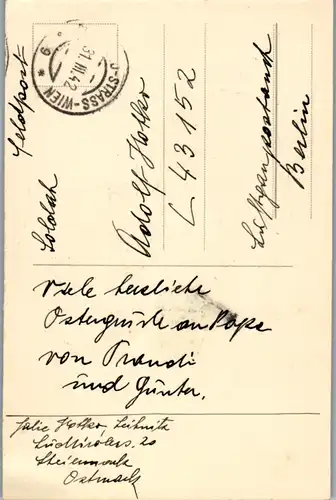 J-STRASS-WIEN
31.III.42
* 9 *
Feldpost
Soldat
Adolf Hotko
L 43152
Luftgaupostamt
Berlin
Viele herzliche
Ostergrüße an Papa
von Traudi
und Günter.
Hotko, Leibnitz
20
Steiermark
Ostmark